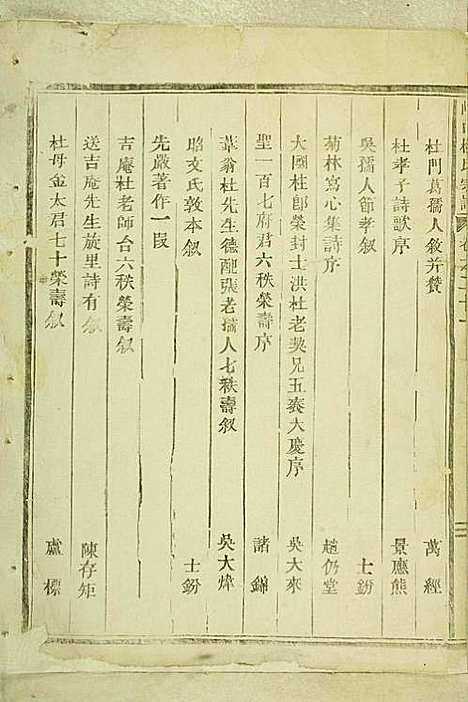 杜門葛孺人敘并贊 萬經
杜孝子詩歌序 景應熊
吳孺人節孝敘 士鈖
菊林寫心集詩序 趙仍堂
大國杜郎榮封士洪杜老奘兄五袠大慶序 吳大來
聖一百七府君六秩榮壽序 諸錦
翁杜先生德配張老孺人七秩壽敘 吳大煒
昭文氏敦本敘 士鈖
先嚴著作一叚
吉庵杜老師台六秩榮壽敘
送吉庵先生旋里詩有敘 陳存矩
杜母金太君七十榮壽敘 盧標